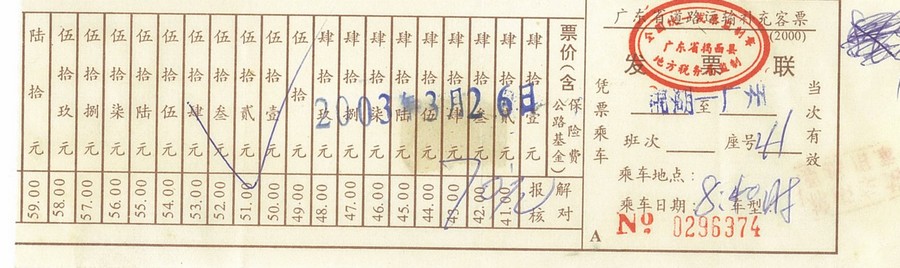 广东省道路运输补充客票
(2000)
全国统一发票监制章
广东省揭西县
地方税务局监制
发票联
凭票乘车
当次有效
至 广
班次
座号 41
乘车地点：
乘车日期：
车型
8:40 时
A
№ 0296374
票价(含保险费公路基金)
肆拾壹元
肆拾贰元
肆拾叁元
肆拾肆元
肆拾伍元
肆拾陆元
肆拾柒元
肆拾捌元
肆拾玖元
伍拾元
伍拾壹元
伍拾贰元
伍拾叁元
伍拾肆元
伍拾伍元
伍拾陆元
伍拾柒元
伍拾捌元
伍拾玖元
陆拾元
2003年3月26日
解对
报核
41.00
42.00
43.00
44.00
45.00
46.00
47.00
48.00
49.00
50.00
51.00
52.00
53.00
54.00
55.00
56.00
57.00
58.00
59.00